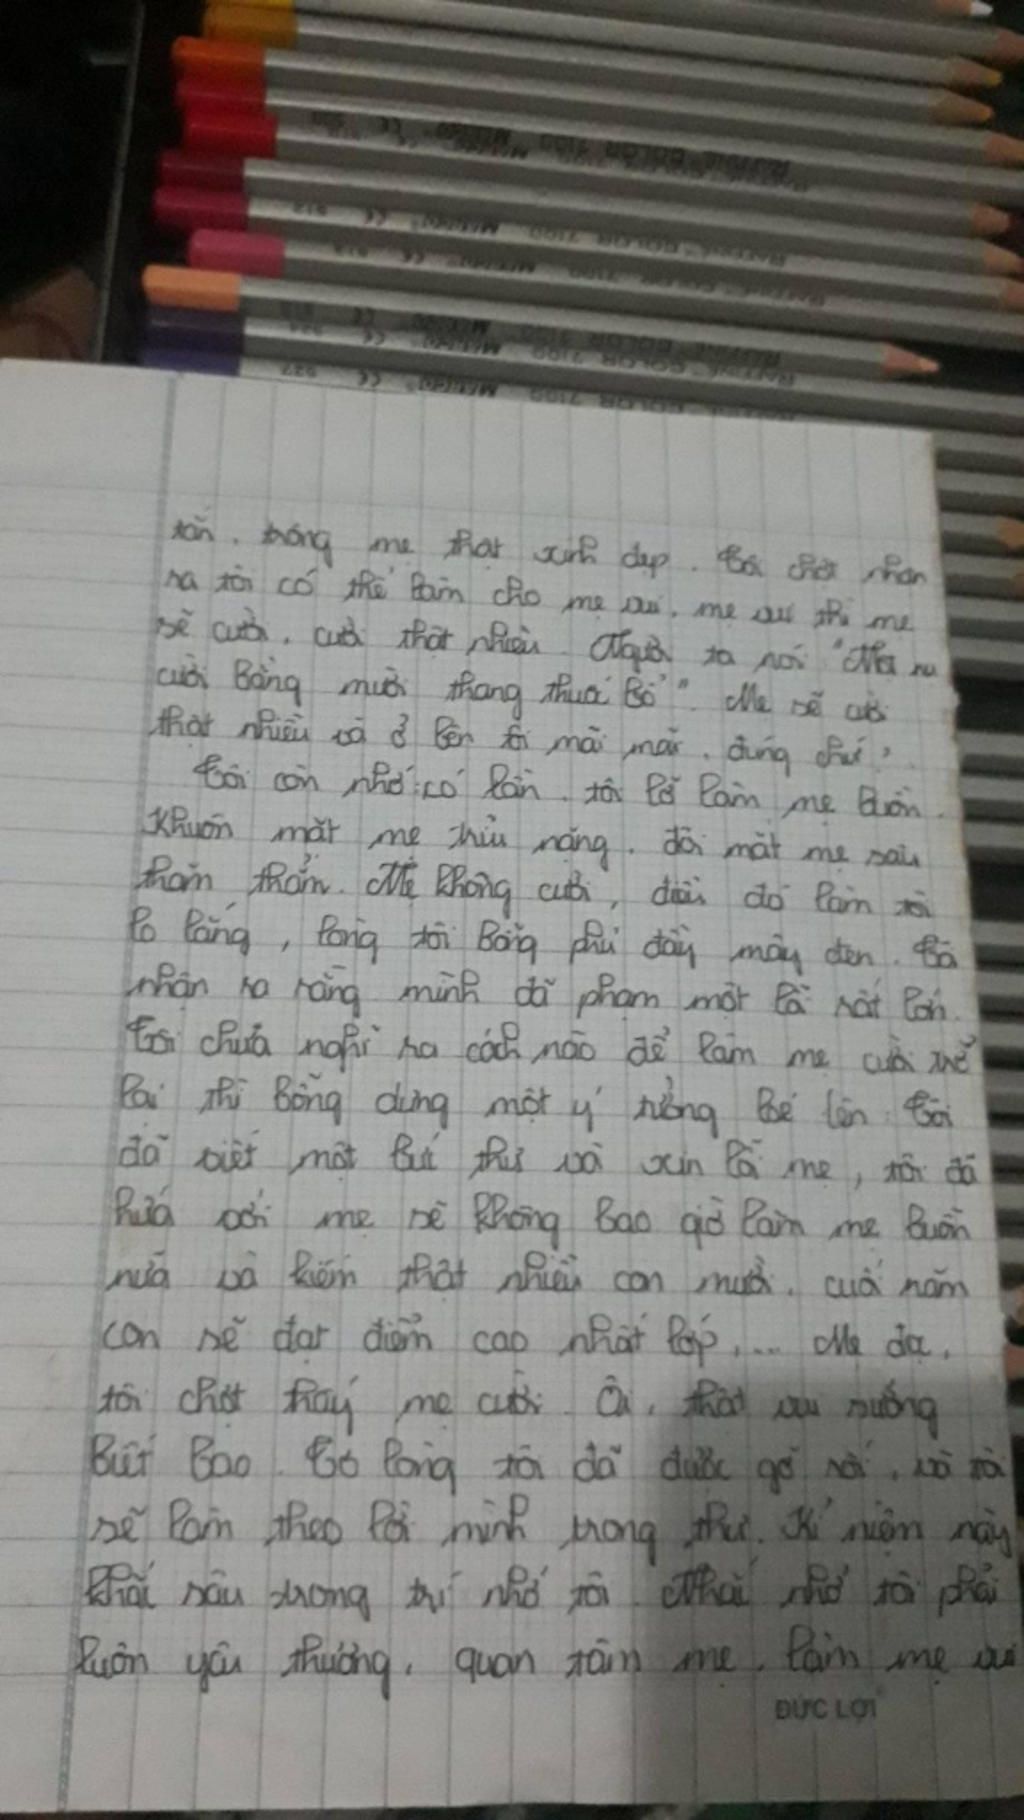 MARCO
RAFFINE COLOR 7100 MARCO
tắn. trông mẹ thật xinh đẹp. Tôi chợt nhận
ra tôi có thể làm cho mẹ vui, mẹ vui thì mẹ
sẽ cười, cười thật nhiều. Người ta nói "Một nụ
cười bằng mười thang thuốc bổ". Mẹ sẽ cười
thật nhiều và ở bên tôi mãi mãi, đúng chứ?
Tôi còn nhớ có lần, tôi lỡ làm mẹ buồn.
Khuôn mặt mẹ trĩu nặng, đôi mắt mẹ sâu
thăm thẳm. Mẹ không cười, điều đó làm tôi
lo lắng, lòng tôi bỗng phủ đầy mây đen. Tôi
nhận ra rằng mình đã phạm một lỗi rất lớn.
Tôi chưa nghĩ ra cách nào để làm mẹ cười trở
lại thì bỗng dưng một ý tưởng lóe lên. Tôi
đã viết một bức thư và xin lỗi mẹ, tôi đã
hứa với mẹ sẽ không bao giờ làm mẹ buồn
nữa và kiếm thật nhiều con mười, cuối năm
con sẽ đạt điểm cao nhất lớp,... Mẹ đọc,
tôi chợt thấy mẹ cười. Ôi, thật vui sướng
biết bao. Tơ lòng tôi đã được gỡ rối, và tôi
sẽ làm theo lời mình trong thư. Kỉ niệm này
khắc sâu trong trí nhớ tôi. Nhắc nhở tôi phải
luôn yêu thương, quan tâm mẹ, làm mẹ vui
ĐỨC LỢI